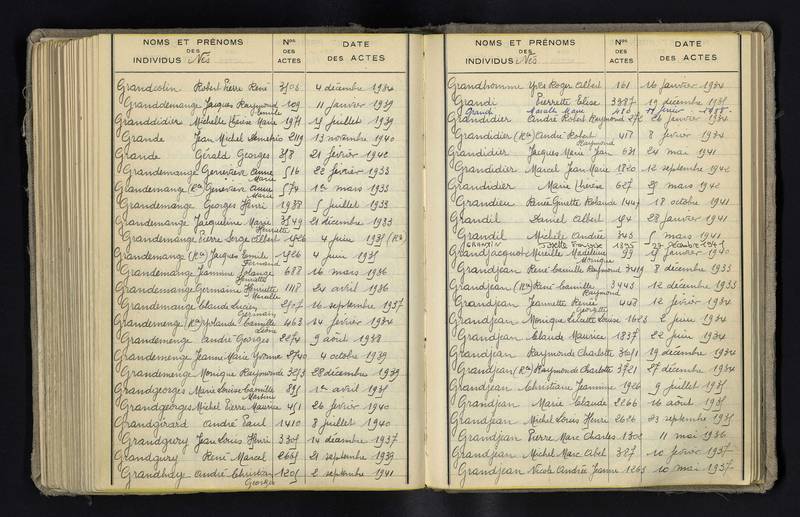 NOMS ET PRÉNOMS DES INDIVIDUS Nés Nos DES ACTES DATE DES ACTES
Grandcolin Robert Pierre René 4 décembre 1934
Granddemange Jacques Raymond 109 11 janvier 1939
Camille
Granddidier Michelle Thérèse Marie 1971 juillet 1939
Grande Jean Michel 2119 13 novembre 1940
Grande Gérald Georges 318 21 février 1942
Grandemange Geneviève Anne 516 22 février 1933
Marie
Grandemange (Rce) Geneviève Anne 574 1er mars 1933
Marie
Grandemange Georges Henri 1988 5 juillet 1933
Grandemange Jacqueline Marie 3549 21 décembre 1933
Henriette
Grandemange Pierre Serge Albert 1526 4 juin 1935 (Rce)
Grandemange (Rce) Jacques Emile 1526 4 juin 1935
Fernand
Grandemange Jeannine Solange 688 16 mars 1936
Henriette
Grandemange Germaine Henriette 1118 24 avril 1936
Marcelle
Grandemange Claude Lucien 2507 16 septembre 1937
Germain
Grandemenge (Rce) Yolande Camille 463 14 février 1934
Léone
Grandemenge André Georges 2274 9 août 1938
Grandemenge Jeanne Marie Yvonne 2740 4 octobre 1939
Grandemenge Monique Raymonde 3253 28 décembre 1939
Grandgeorges Marie Louise Camille 851 1er avril 1935
Martine
Grandgeorges Michel Pierre Maurice 451 26 février 1940
Grandgirard André Paul 1410 8 juillet 1940
Grandgury Jean Louis Henri 3305 14 décembre 1937
Grandgury René Marcel 2665 21 septembre 1939
Grandhay André Christian 1205 2 septembre 1941
Georges
NOMS ET PRÉNOMS DES INDIVIDUS Nés Nos DES ACTES DATE DES ACTES
Grandhomme Yves Roger Albert 161 16 janvier 1934
Grandi Pierrette Elise 3387 19 décembre 1935
Grandi Marcelle Marie
Grandidier André Robert Raymond 272 26 janvier 1934
Grandidier (Rce) André Robert 417 8 février 1934
Raymond
Grandidier Jacques Marie Jean 631 24 mai 1941
Grandidier Marcel Jean Marie 1820 12 septembre 1942
Grandidier Marie Thérèse 627 25 mars 1942
Grandieu René Ginette Rolande 1447 18 octobre 1941
Grandil Daniel Albert 154 28 janvier 1941
Grandil Michèle Andrée 343 5 mars 1941
GRANDIN Josette Françoise 1895 27 décembre 1941
Grandjacquot Mireille Madeleine 99 janvier 1940
Monique
Grandjean René Camille Raymond 3419 8 décembre 1933
Grandjean (Rce) René Camille 3443 12 décembre 1933
Raymond
Grandjean Jeannette Renée 448 12 février 1934
Georgette
Grandjean Monique Lucette Louise 1623 2 juin 1934
Grandjean Claude Maurice 1837 22 juin 1934
Grandjean Raymonde Charlotte 3651 19 décembre 1934
Grandjean (Rce) Raymonde Charlotte 3721 27 décembre 1934
Grandjean Christiane Jeannine 1926 9 juillet 1935
Grandjean Marie Claude 2266 16 août 1935
Grandjean Michel Louis Henri 2626 23 septembre 1935
Grandjean Pierre Marc Charles 1302 11 mai 1936
Grandjean Michel Marc Abel 387 10 février 1937
Grandjean Nicole Andrée Jeanne 1263 10 mai 1937